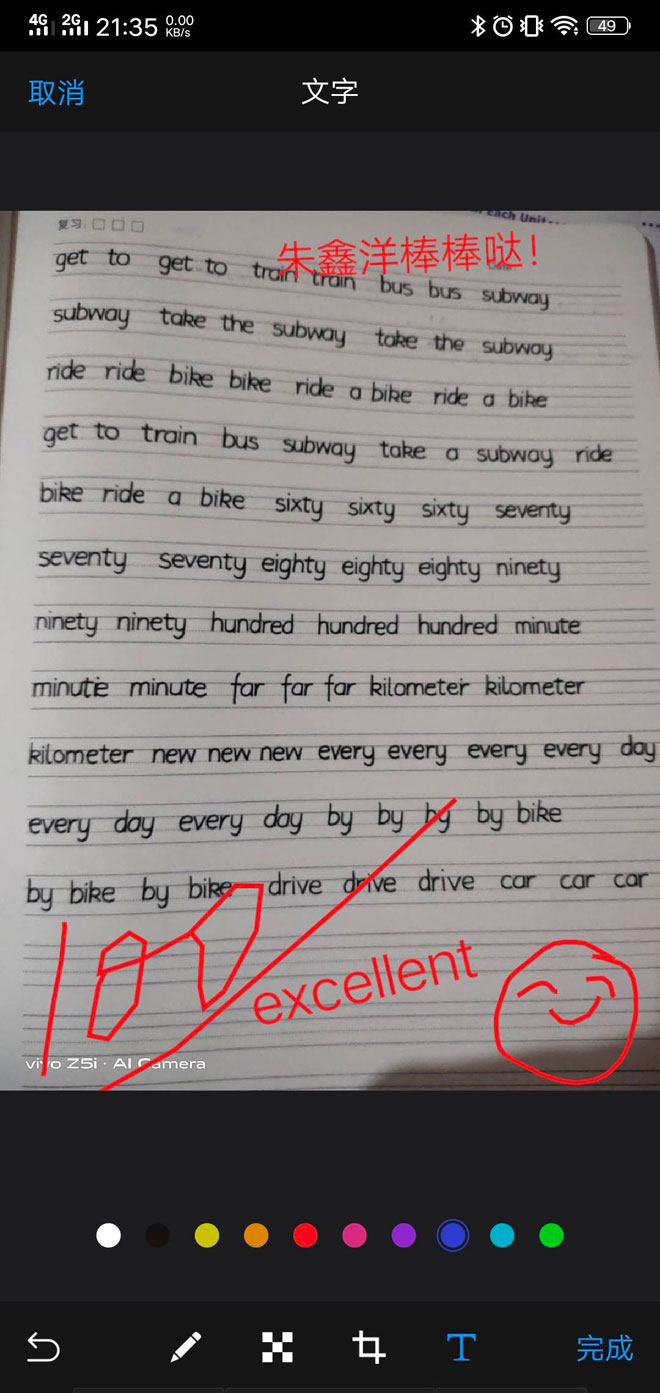 4G 2G 21:35 0.00 KB/s 49
取消 文字
复习: Each Unit
朱鑫洋棒棒哒!
get to get to train train bus bus subway
subway take the subway take the subway
ride ride bike bike ride a bike ride a bike
get to train bus subway take a subway ride
bike ride a bike sixty sixty sixty seventy
seventy seventy eighty eighty eighty ninety
ninety ninety hundred hundred hundred minute
minute minute far far far kilometer kilometer
kilometer new new new every every every every day
every day every day by by by by bike
by bike by bike drive drive drive car car car
100
excellent
vivo Z5i · AI Camera
T 完成